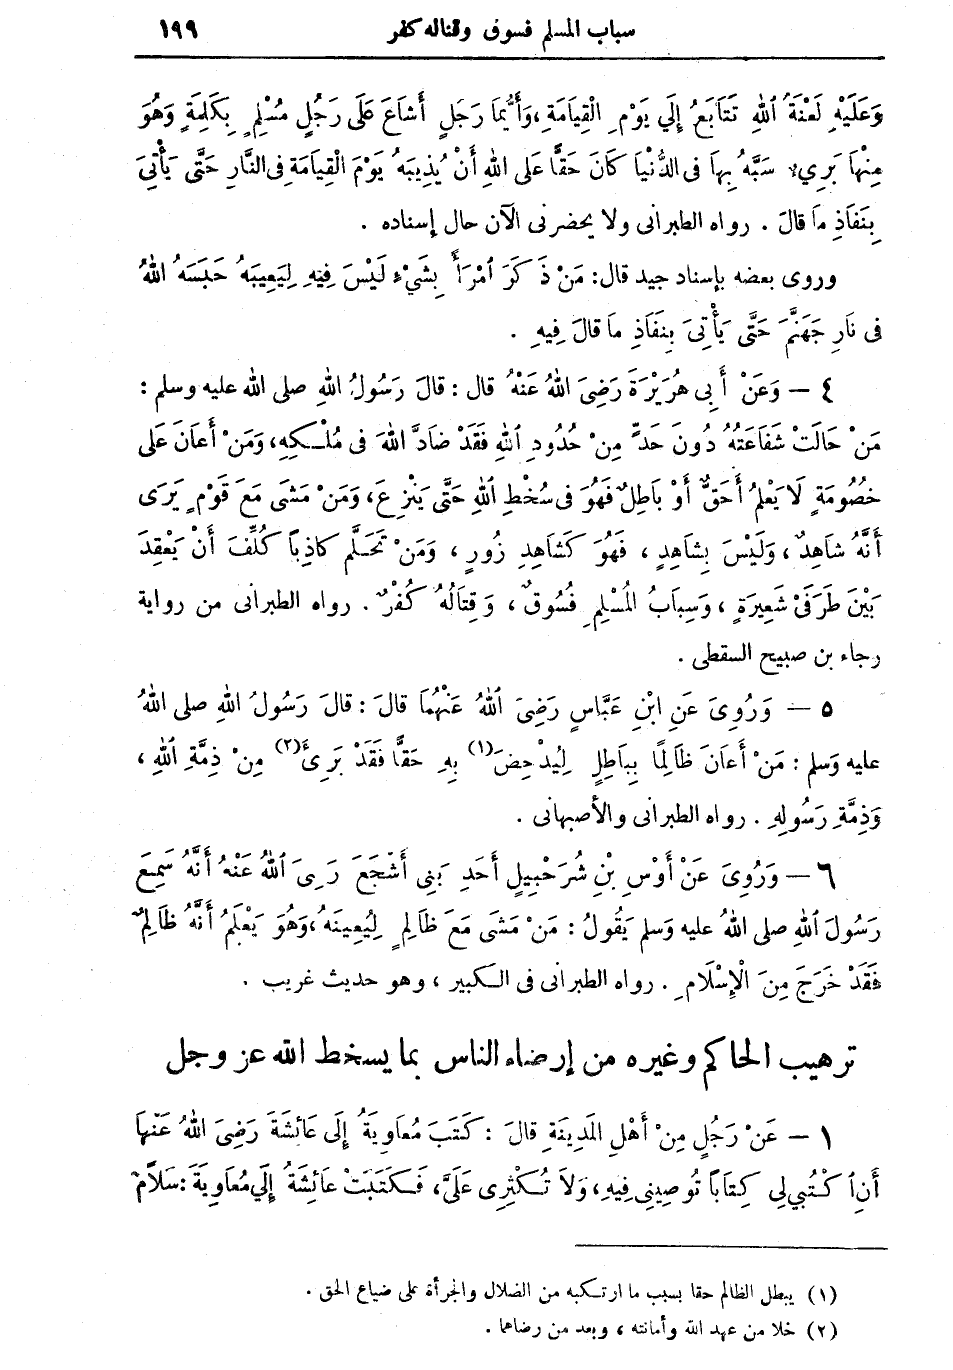 سباب المسلم فسوق وقتاله كفر ١٩٩
وَعَلَيْهِ لَعْنَةُ اللهِ تَتَابَعُ إِلَي يَوْمِ الْقِيَامَةِ، وَأَيُّمَا رَجُلٍ أَشَاعَ عَلَى رَجُلٍ مُسْلِمٍ بِكَلِمَةٍ وَهُوَ
مِنْهَا بَرِيءٌ سَبَّهُ بِهَا فى الدُّنْيَا كَانَ حَقًّا عَلَى اللهِ أَنْ يُذِيبَهُ يَوْمَ الْقِيَامَةِ فِى النَّارِ حَتَّى يَأْتِىَ
بِنَفَاذِ مَا قَالَ . رواه الطبرانى ولا يحضرنى الآن حال إسناده .
وروى بعضه بإسناد جيد قال: مَنْ ذَكَرَ امْرَأً بِشَيْءٍ لَيْسَ فِيهِ لِيَعِيبَهُ حَبَسَهُ اللهُ
فى نَارِ جَهَنَّمَ حَتَّى يَأْتِىَ بِنَفَاذِ مَا قَالَ فِيهِ .
٤ — وَعَنْ أَبِى هُرَيْرَةَ رَضِىَ اللهُ عَنْهُ قال : قَالَ رَسُولُ اللهِ صلى الله عليه وسلم :
مَنْ حَالَتْ شَفَاعَتُهُ دُونَ حَدٍّ مِنْ حُدُودِ اللهِ فَقَدْ ضَادَّ اللهَ فى مُلْكِهِ، وَمَنْ أَعَانَ عَلى
خُصُومَةٍ لَا يَعْلَمُ أَحَقٌّ أَوْ بَاطِلٌ فَهُوَ فى سُخْطِ اللهِ حَتَّى يَنْزِعَ، وَمَنْ مَشَى مَعَ قَوْمٍ يَرَى
أَنَّهُ شَاهِدٌ، وَلَيْسَ بِشَاهِدٍ، فَهُوَ كَشَاهِدِ زُورٍ، وَمَنْ تَحَلَّمَ كاذِباً كُلِّفَ أَنْ يَعْقِدَ
بَيْنَ طَرَفَىْ شَعِيرَةٍ، وَسِبَابُ الْمُسْلِمِ فُسُوقٌ، وَقِتَالُهُ كُفْرٌ. رواه الطبرانى من رواية
رجاء بن صبيح السقطى .
٥ — وَرُوِىَ عَنِ ابْنِ عَبَّاسٍ رَضِىَ اللهُ عَنْهُمَا قَالَ : قَالَ رَسُولُ اللهِ صلى اللهُ
عليه وَسلم : مَنْ أَعَانَ ظَالِمًا بِبَاطِلٍ لِيُدْحِضَ(١) بِهِ حَقًّا فَقَدْ بَرِئَ(٢) مِنْ ذِمَّةِ اللهِ،
وَذِمَّةِ رَسُولِهِ. رواه الطبرانى والأصبهانى .
٦ — وَرُوِىَ عَنْ أَوْسِ بْنِ شُرَحْبِيلٍ أَحَدِ بَنِى أَشْجَعَ رَ ِىَ اللهُ عَنْهُ أَنَّهُ سَمِعَ
رَسُولَ اللهِ صلى اللهُ عليه وَسلم يَقُولُ : مَنْ مَشَى مَعَ ظَالِمٍ لِيُعِينَهُ، وَهُوَ يَعْلَمُ أَنَّهُ ظَالِمٌ
فَقَدْ خَرَجَ مِنَ الْإِسْلَامِ . رواه الطبرانى فى الكبير، وهو حديث غريب .
ترهيب الحاكم وغيره من إرضاء الناس بما يسخط الله عز وجل
١ — عَنْ رَجُلٍ مِنْ أَهْلِ الْمَدِينَةِ قَالَ : كَتَبَ مُعَاوِيَةُ إِلَى عَائِشَةَ رَضِىَ اللهُ عَنْهَا
أَنِ اكْتُبِي لِي كِتَاباً تُوصِينِى فِيهِ، وَلاَ تُكْثِرِى عَلَىَّ، فَكَتَبَتْ عَائِشَةُ إِلَي مُعَاوِيَةَ : سَلاَمٌ
(١) يبطل الظالم حقا بسبب ما ارتكبه من الضلال والجرأة على ضياع الحق .
(٢) خلا من عهد الله وأمانته، وبعد من رضاهما .